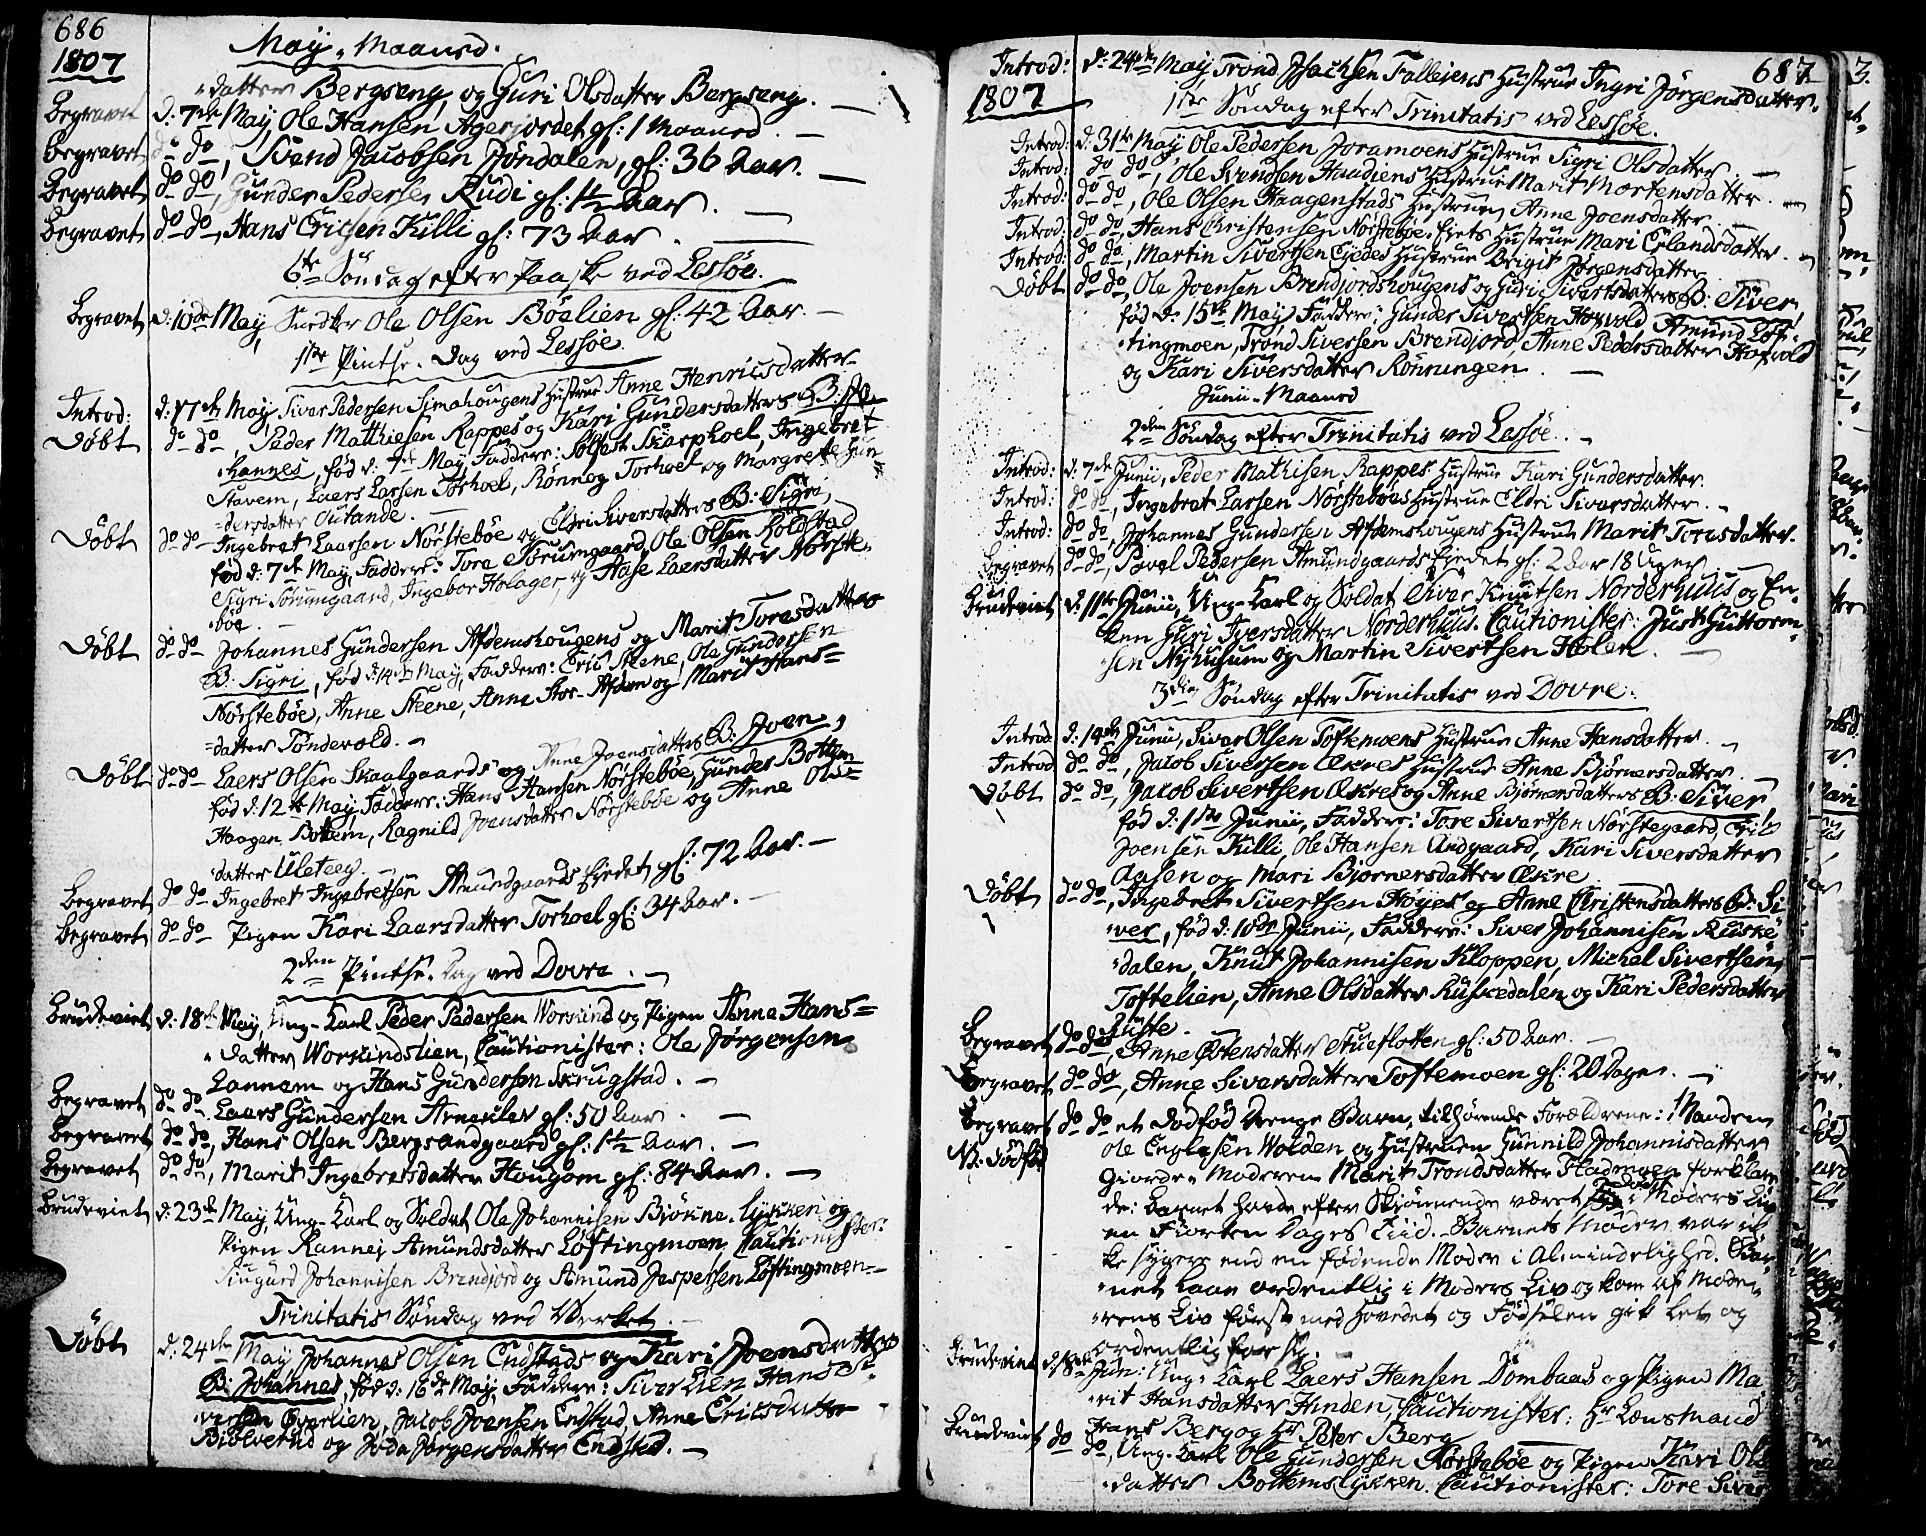 686
1807
May-Maaned.
datter Bergseng, og Guri Olsdatter Bergseng.
Begravet d: 7de May, Ole Hansen Agerjordet gl: 1 Maaned.
Begravet do do, Svend Jacobsen Jøndalen, gl: 36 Aar.
Begravet do do, Gunder Pedersen Rudi gl: 1½ Aar.
Begravet do do, Hans Ericsen Killi gl: 73 Aar.
6te Søndag efter Paaske ved Lessøe.
Begravet d: 10de May, Ole Olsen Bøelien gl: 42 Aar.
1ste Pintse-Dag ved Lessøe.
Introd: d: 17de May Siver Pedersen Simahougens Hustrue Anne Henricsdatter
Døbt do do, Peder Matthiesen Rappes og Kari Gundersdatters B: Jo-
hannes, fød d: 7de May, Faddere: Skarphoel, Ingebret
Stavem, Laers Larsen Torhoel, Rønneg Torhoel og Margrette Gun
dersdatter Outande.
Døbt do do Ingebret Laarsen Nørstebøe og Eldri Siversdatters B: Sigri,
fød d: 7de May, Faddere: Tore Sørumgaard, Ole Olsen Koldstad
Sigri Sørumgaard, Ingebor Holager, og Aase Laersdatter Nørste-
bøe.
Døbt do do Johannes Gundersen Afdemshougens og Marit Toresdatters
B: Sigri, fød d: 14de May, Faddere: Eric Steene, Ole Gundersen
Nørstebøe, Anne Steene, Anne Stor-Afdem og Marit Hans-
datter Tøndevold.
Døbt do do Laers Olsen Skaalgaards og Anne Joensdatters B: Joen,
fød d: 12te May, Faddere: Hans Hansen Nørstebøe, Gunder Bottem
Haagen Bottem, Ragnild Joensdatter Nørstebøe og Anne Ols-
datter Uleteeg.
Begravet do do Ingebret Ingebretsen Amundgaards Eiedet gl: 72 Aar.
Begravet do do Pigen Kari Laarsdatter Torhoel gl: 34 Aar.
2den Pintse-Dag ved Dovre.
Brudeviet d: 18de May, Ung-Karl Peder Pedersen Workind og Pigen Anne Hans-
datter Workindslien, Cautionister: Ole Jørgensen
Lannem og Hans Gundersen Skrugstad.
Begravet do do Laars Gundersen gl: 50 Aar.
Begravet do do, Hans Olsen Bergsandgaard gl: 1½ Aar.
Begravet do do, Marit Ingebretsdatter Hougom gl: 84 Aar.
Brudeviet d: 23de May, Ung-Karl og Soldat Ole Johannisen Biøkne-Lykken og
Pigen Rannej Amundsdatter Løftingmoen, Cautionister:
Siugurd Johannisen Brendjord og Amund Jespersen Løftingmoen.
Trinitatis Søndag ved Værket.
Døbt d: 24de May Johannes Olsen Endstads og Kari Joensdatters
B: Johannes, fød d: 16de May, Faddere: Siver Lien, Hans Si-
versen Overlien, Jacob Joensen Endstad, Anne Ericsdatter
Biølverud og Jøda Jørgensdatter Endstad.
687
1807
Introd: d: 24de May Trond Jsachsen Falleiens Hustrue Ingri Jørgensdatter.
1ste Søndag efter Trinitatis ved Lessøe.
Introd: d: 31te May Ole Pedersen Joramoens Hustrue Sigri Olsdatter.
Introd: do do, Ole Svendsen Haudiens Hustrue Marit Mortensdatter.
Introd: do do, Ole Olsen Haagenstads Hustrue Anne Joensdatter
Introd: do do, Hans Christensen Nørstebøe-Eiets Hustrue Mari Erlandsdatter.
Introd: do do, Martin Sivertsen Eiedes Hustrue Brigit Jørgensdatter
Døbt do do, Ole Joensen Brendjordshougens og Guri Sivertsdatters B: Siver,
fød d: 15de May, Faddere: Gunder Sivertsen Hofvold, Amund Løf-
tingmoen, Trond Siversen Brendjord, Anne Pedersdatter Hofvold
og Kari Siversdatter Rønningen.
Junii-Maaned
2den Søndag efter Trinitatis ved Lessøe.
Introd: d: 7de Junii, Peder Mathisen Rappes Hustrue Kari Gundersdatter.
Introd: do do, Ingebret Larsen Nørstebøes Hustrue Eldri Siversdatter.
Introd: do do, Johannes Gundersen Afdemshougens Hustrue Marit Toresdatter.
Begravet do do, Povel Pedersen Amundgaards Eiedet gl: 2 Aar 18 Uger
Brudeviet d: 11te Junii, Ung-Karl og Soldat Siver Knutsen Norderhuus og En-
ken Guri Iversdatter Norderhuus. Cautionister: Just Guttorm-
sen Nyhusum og Martin Sivertsen Holen.
3die Søndag efter Trinitatis ved Dovre.
Introd d: 14de Junii, Siver Olsen Toftemoens Hustrue Anne Hansdatter.
Introd do do, Jacob Siversen Ækres Hustrue Anne Bjørnersdatter.
Døbt do do, Jacob Sivertsen Ækres og Anne Bjørnersdatters B: Siver
fød d: 1ste Junii, Faddere: Tore Sivertsen Nørstegaard, Eril
Joensen Killi, Ole Hansen Andgaard, Kari Siversdatter
Aasen og Mari Bjørnersdatter Ækre.
Døbt do do, Ingebret Sivertsen Høyes og Anne Christensdatters B: Si
ver, fød d: 10de Junii, Faddere: Siver Johannisen Ruske
dalen, Knut Johannisen Kloppen, Michel Sivertsen
Toftelien, Anne Olsdatter Ruskedalen og Kari Pedersdatter
Kliste.
Begravet do do, Anne Østensdatter Stuefløtten gl: 50 Aar.
Begravet do do, Anne Siversdatter Toftemoen gl: 20 Dage.
Begravet do do et dødfød Drenge Barn, tilhørende Forældrene: Manden
N: dødfød
Ole Englesen Wolden og Hustruen Gunnild Johannisdatter
Giorde-Moderen Marit Trondsdatter Fladmoen forklar
de: Barnet havde efter Skjønnende været dødt i Moders Liv
en Fiorten Dages Tiid. Barnets Moder var ik
ke sygere end en fødende Moder i Almindelighed. Bar-
net laae ordentlig i Moders Liv og kom af Mode-
rens Liv først med Hovedet og Fødselen gik let og
ordentlig for sig.
Brudeviet d: 18de Jun: Ung-Karl Laers Hansen Dombaas og Pigen Ma
rit Hansdatter Hinden, Cautionister: Hr Lænsmand
Hans Berg og Hr Peter Berg
Brudeviet do do, Ung-Karl Ole Gundersen Nørstebøe og Pigen Kari Ols
datter Bottemslykken. Cautionister: Tore Siver